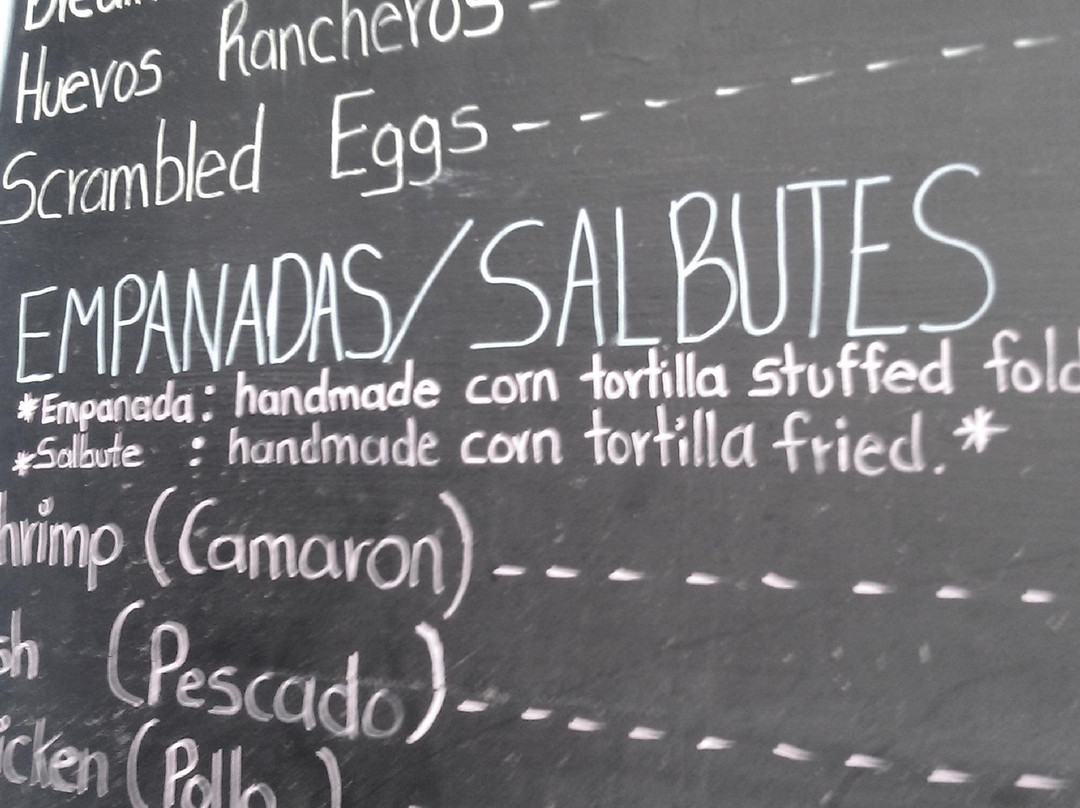 Huevos Rancheros -
Scrambled Eggs - - - - - - - -
EMPANADAS/SALBUTES
*Empanada: handmade corn tortilla stuffed fold
*Salbute : handmade corn tortilla fried.*
hrimp (Camaron) - - - - - - - -
sh (Pescado) - - - - - - - - -
icken (Pollo )